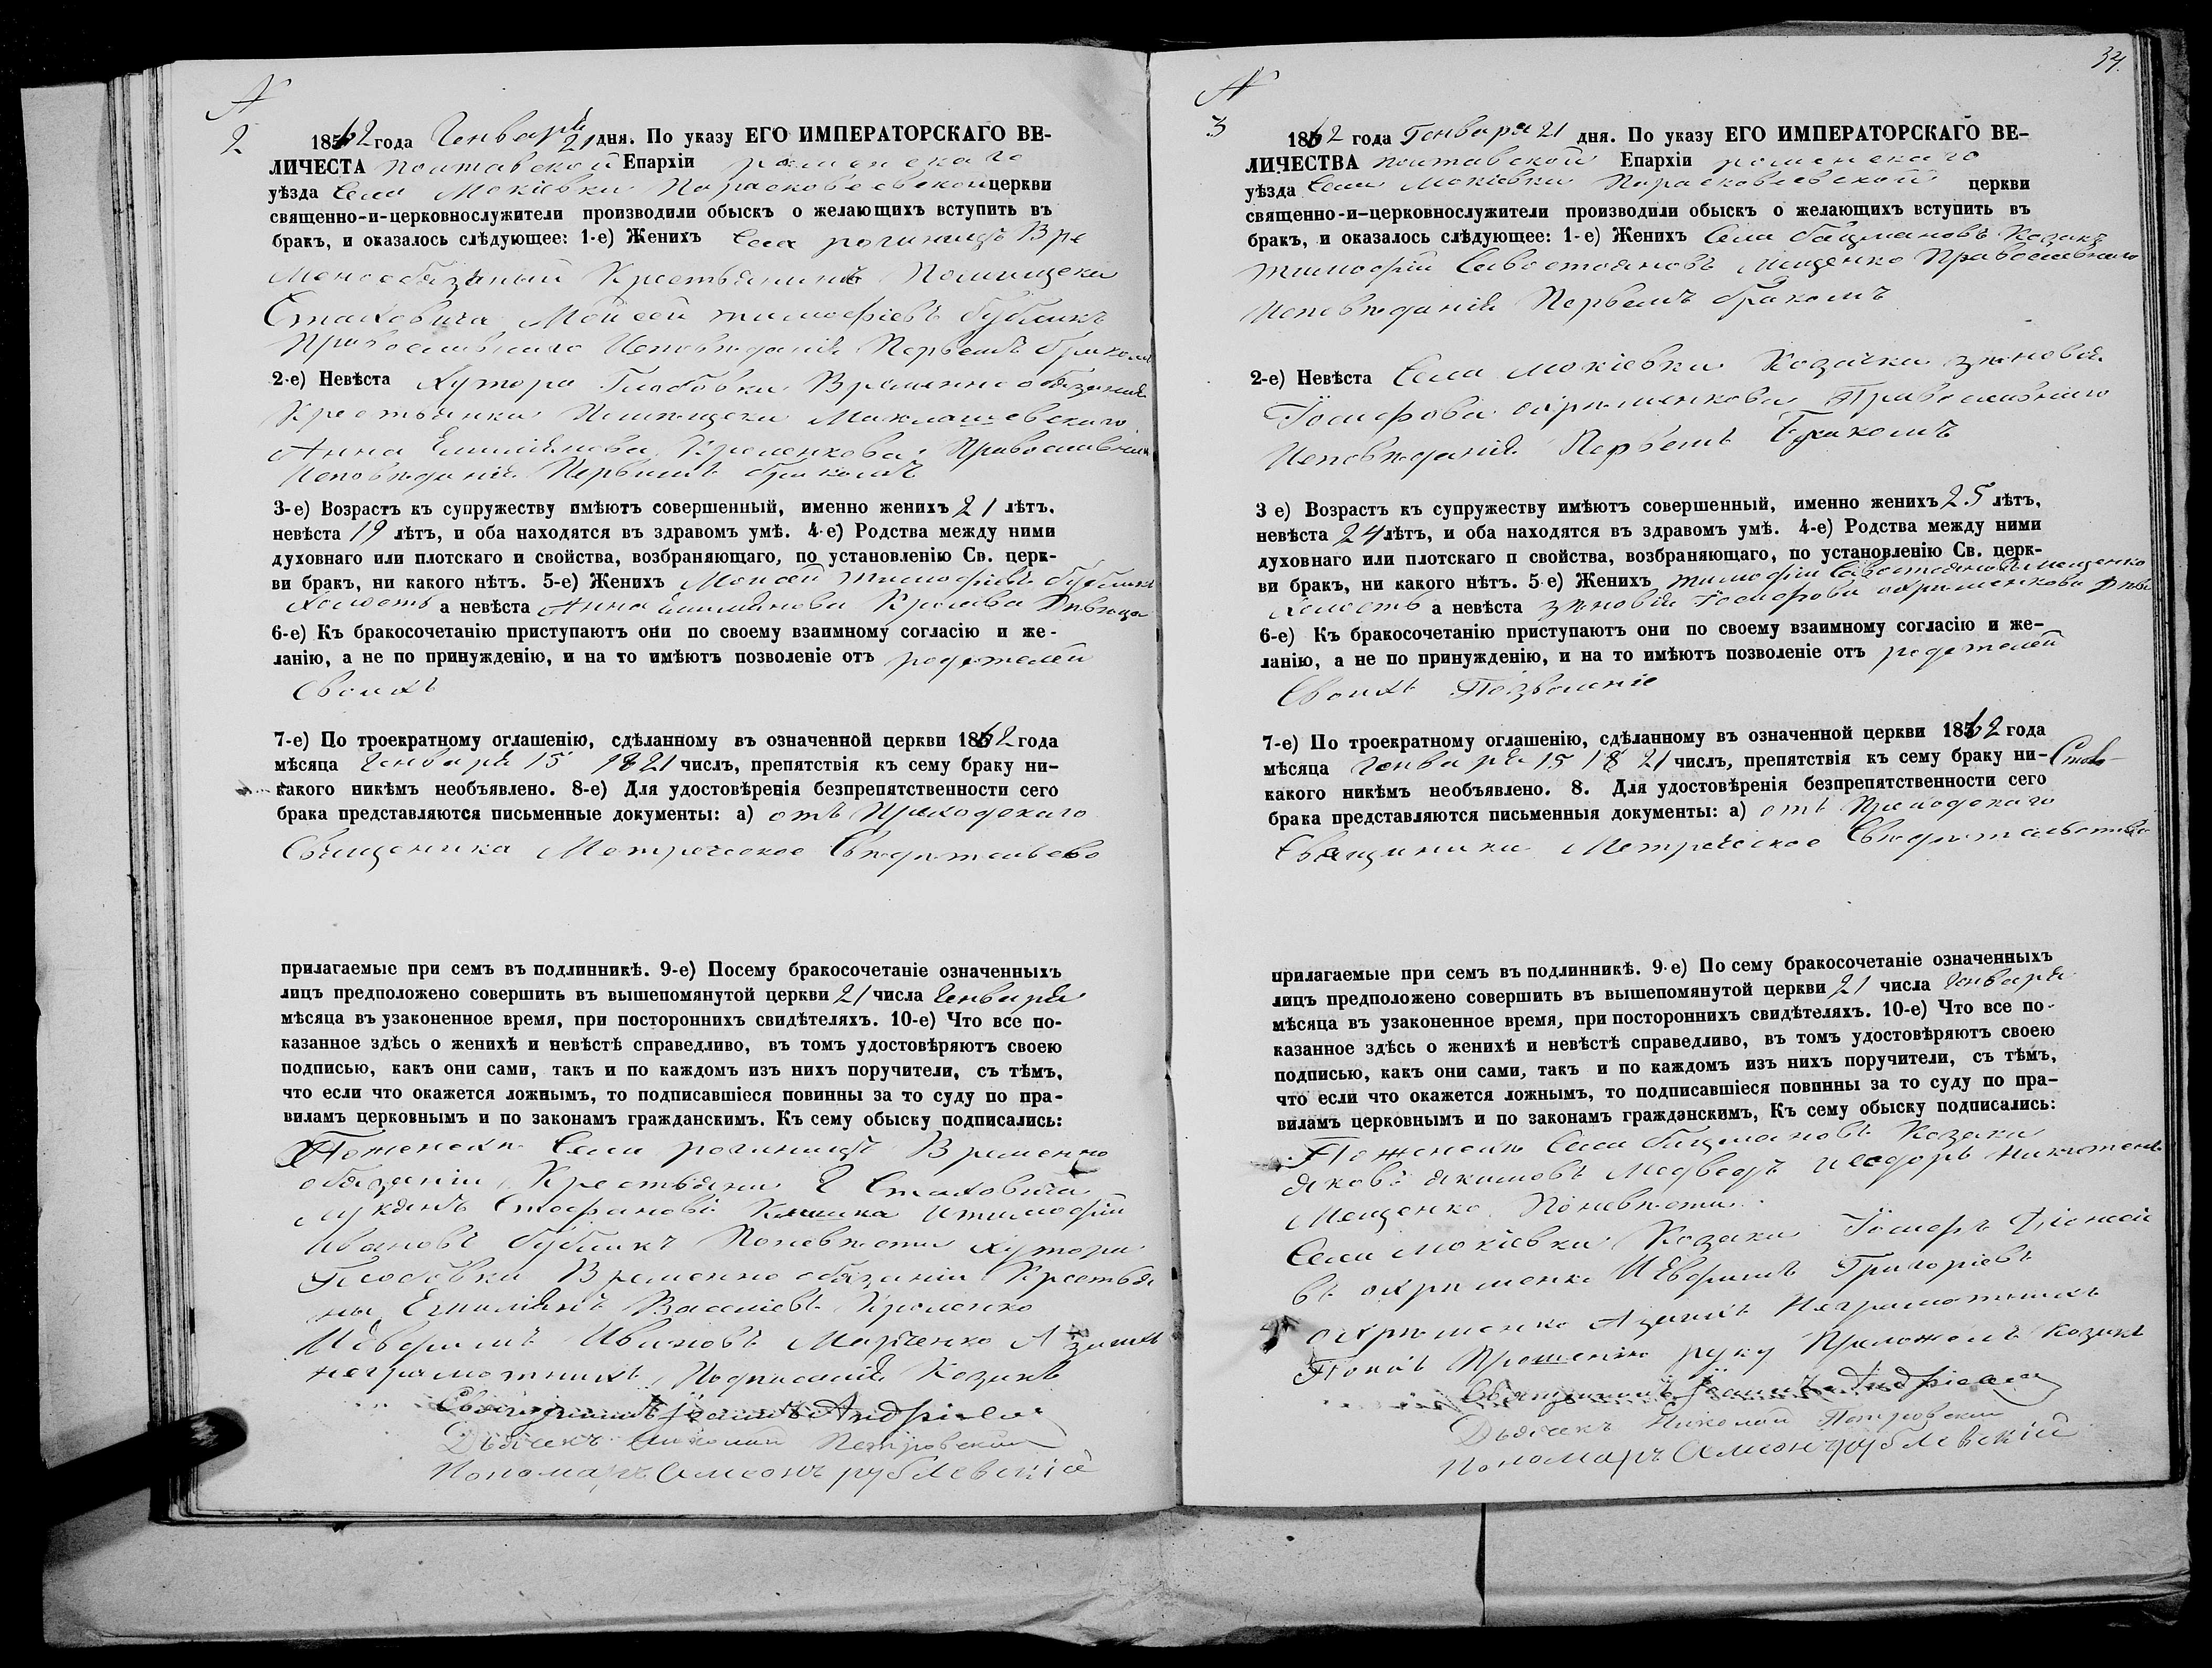 №
2
1862 года Генваря 21 дня. По указу ЕГО ИМПЕРАТОРСКАГО ВЕ-
ЛИЧЕСТА полтавской Епархіи роменскаго
уѣзда Села Мокіевки Парасковѣевской церкви
священно-и-церковнослужители производили обыскъ о желающихъ вступить въ
бракъ, и оказалось слѣдующее: 1-е) Женихъ Села рогинцѣ Вре
Менообязаный Крестьянинъ Помищека
Стаховича Мойсей тимофіевъ бубликъ
Православнаго Исповѣданія Первымъ бракомъ
2-е) Невѣста Хутора Временно обязаная
Крестьянка Помищека Миклашевскаго
Анна Емиліянова Кроленкова Православнаго
Исповѣданія Первымъ бракомъ
3-е) Возрастъ къ супружеству имѣютъ совершенный, именно женихъ 21 лѣтъ.
невѣста 19 лѣтъ, и оба находятся въ здравомъ умѣ. 4-е) Родства между ними
духовнаго или плотскаго и свойства, возбраняющаго, по установленію Св. церк-
ви бракъ, ни какого нѣтъ. 5-е) Женихъ Моисей тимофіевъ бубликъ
Холостъ а невѣста Анна Емилиянова Дѣвица
6-е) Къ бракосочетанію приступаютъ они по своему взаимному согласію и же-
ланію, а не по принужденію, и на то имѣютъ позволеніе отъ родителей
Своихъ
7-е) По троекратному оглашенію, сдѣланному въ означенной церкви 1862 года
мѣсяца Генваря 15 18 21 числъ, препятствія къ сему браку ни-
какого никѣмъ необъявлено. 8-е) Для удостовѣренія безпрепятственности сего
брака представляются письменные документы: а) отъ Приходскаго
Священика Метрическое
прилагаемые при семъ въ подлинникѣ. 9-е) Посему бракосочетаніе означенныхъ
лицъ предположено совершить въ вышепомянутой церкви 21 числа Генваря
мѣсяца въ узаконенное время, при постороннихъ свидѣтеляхъ. 10-е) Что все по-
казанное здѣсь о женихѣ и невѣстѣ справедливо, въ томъ удостовѣряютъ своею
подписью, какъ они сами, такъ и по каждомъ изъ нихъ поручители, съ тѣмъ,
что если что окажется ложнымъ, то подписавшіеся повинны за то суду по пра-
виламъ церковнымъ и по законамъ гражданскимъ. Къ сему обыску подписались:
Поженихи Села рогинцѣ Временно
обязаніи Крестьяни Г Стаховича
Лукіянъ Стефановъ Кишка Итимофій
Ивановъ бубликъ Поневѣсти Хутора
Временно обязаніи Крестья
ны Емиліянъ Василіевъ Кроленко
Ивановъ Марченко А занихъ
неграмотнихъ Козакъ
Священникъ Іоаннъ Андріевъ
Дьячекъ Николай Петровскій
Пономарь Симеонъ рублевскій
34.
№
3
1862 года Генваря 21 дня. По указу ЕГО ИМПЕРАТОРСКАГО ВЕ-
ЛИЧЕСТВА полтавской Епархіи роменскаго
уѣзда Села Мокіевки Парасковіевской церкви
священно-и-церковнослужители производили обыскъ о желающихъ вступить въ
бракъ, и оказалось слѣдующее: 1-е) Женихъ Села бацмановъ Козакъ
тимофій Савостяновъ Мащенко Православнаго
Исповѣданія Первымъ бракомъ
2-е) Невѣста Села мокіевки Козачка зѣновія
Іосифова охрѣменкова Православнаго
Исповѣданія Первымъ Бракомъ
3 е) Возрастъ къ супружеству имѣютъ совершенный, именно женихъ 25 лѣтъ,
невѣста 24 лѣтъ, и оба находятся въ здравомъ умѣ. 4-е) Родства между ними
духовнаго или плотскаго п свойства, возбраняющаго, по установленію Св. церк-
ви бракъ, ни какого нѣтъ. 5-е) Женихъ тимофіи Савостяновъ Мащенко
Холостъ а невѣста зѣновія Іосифова охрѣменкова Дѣви
6-е) Къ бракосочетанію приступаютъ они по своему взаимному согласію и же-
ланію, а не по принужденію, и на то имѣютъ позволеніе отъ родителей
Своихъ Позволеніе
7-е) По троекратному оглашенію, сдѣланному въ означенной церкви 1862 года
мѣсяца Генваря 15 18 21 числъ, препятствія къ сему браку ни-
какого никѣмъ необъявлено. 8. Для удостовѣренія безпрепятственности сего
брака представляются письменныя документы: а) отъ Приходскаго
Священика Метрическое Свѣдительство
прилагаемые при семъ въ подлинникѣ. 9-е) По сему бракосочетаніе означенныхъ
лицъ предположено совершить въ вышепомянутой церкви 21 числа Генваря
мѣсяца въ узаконенное время, при постороннихъ свидѣтеляхъ. 10-е) Что все по-
казанное здѣсь о женихѣ и невѣстѣ справедливо, въ томъ удостовѣряютъ своею
подписью, какъ они сами, такъ и по каждомъ изъ нихъ поручители, съ тѣмъ,
что если что окажется ложнымъ, то подписавшіеся повинны за то суду по пра-
виламъ церковнымъ и по законамъ гражданскимъ, Къ сему обыску подписались:
Поженихи Села бацмановъ Козаки
яковъ якимовъ Медведъ
Мащенко Поневѣсти
Села мокіевки Козаки Іосифъ
въ охрѣменко Григоріевъ
охрѣменко Азанихъ Неграмотнихъ
Прошенію руку Приложилъ Козакъ
Священникъ Іоаннъ Андріевъ
Дьячекъ Николай Петровскій
Пономарь Симеонъ рублевскій